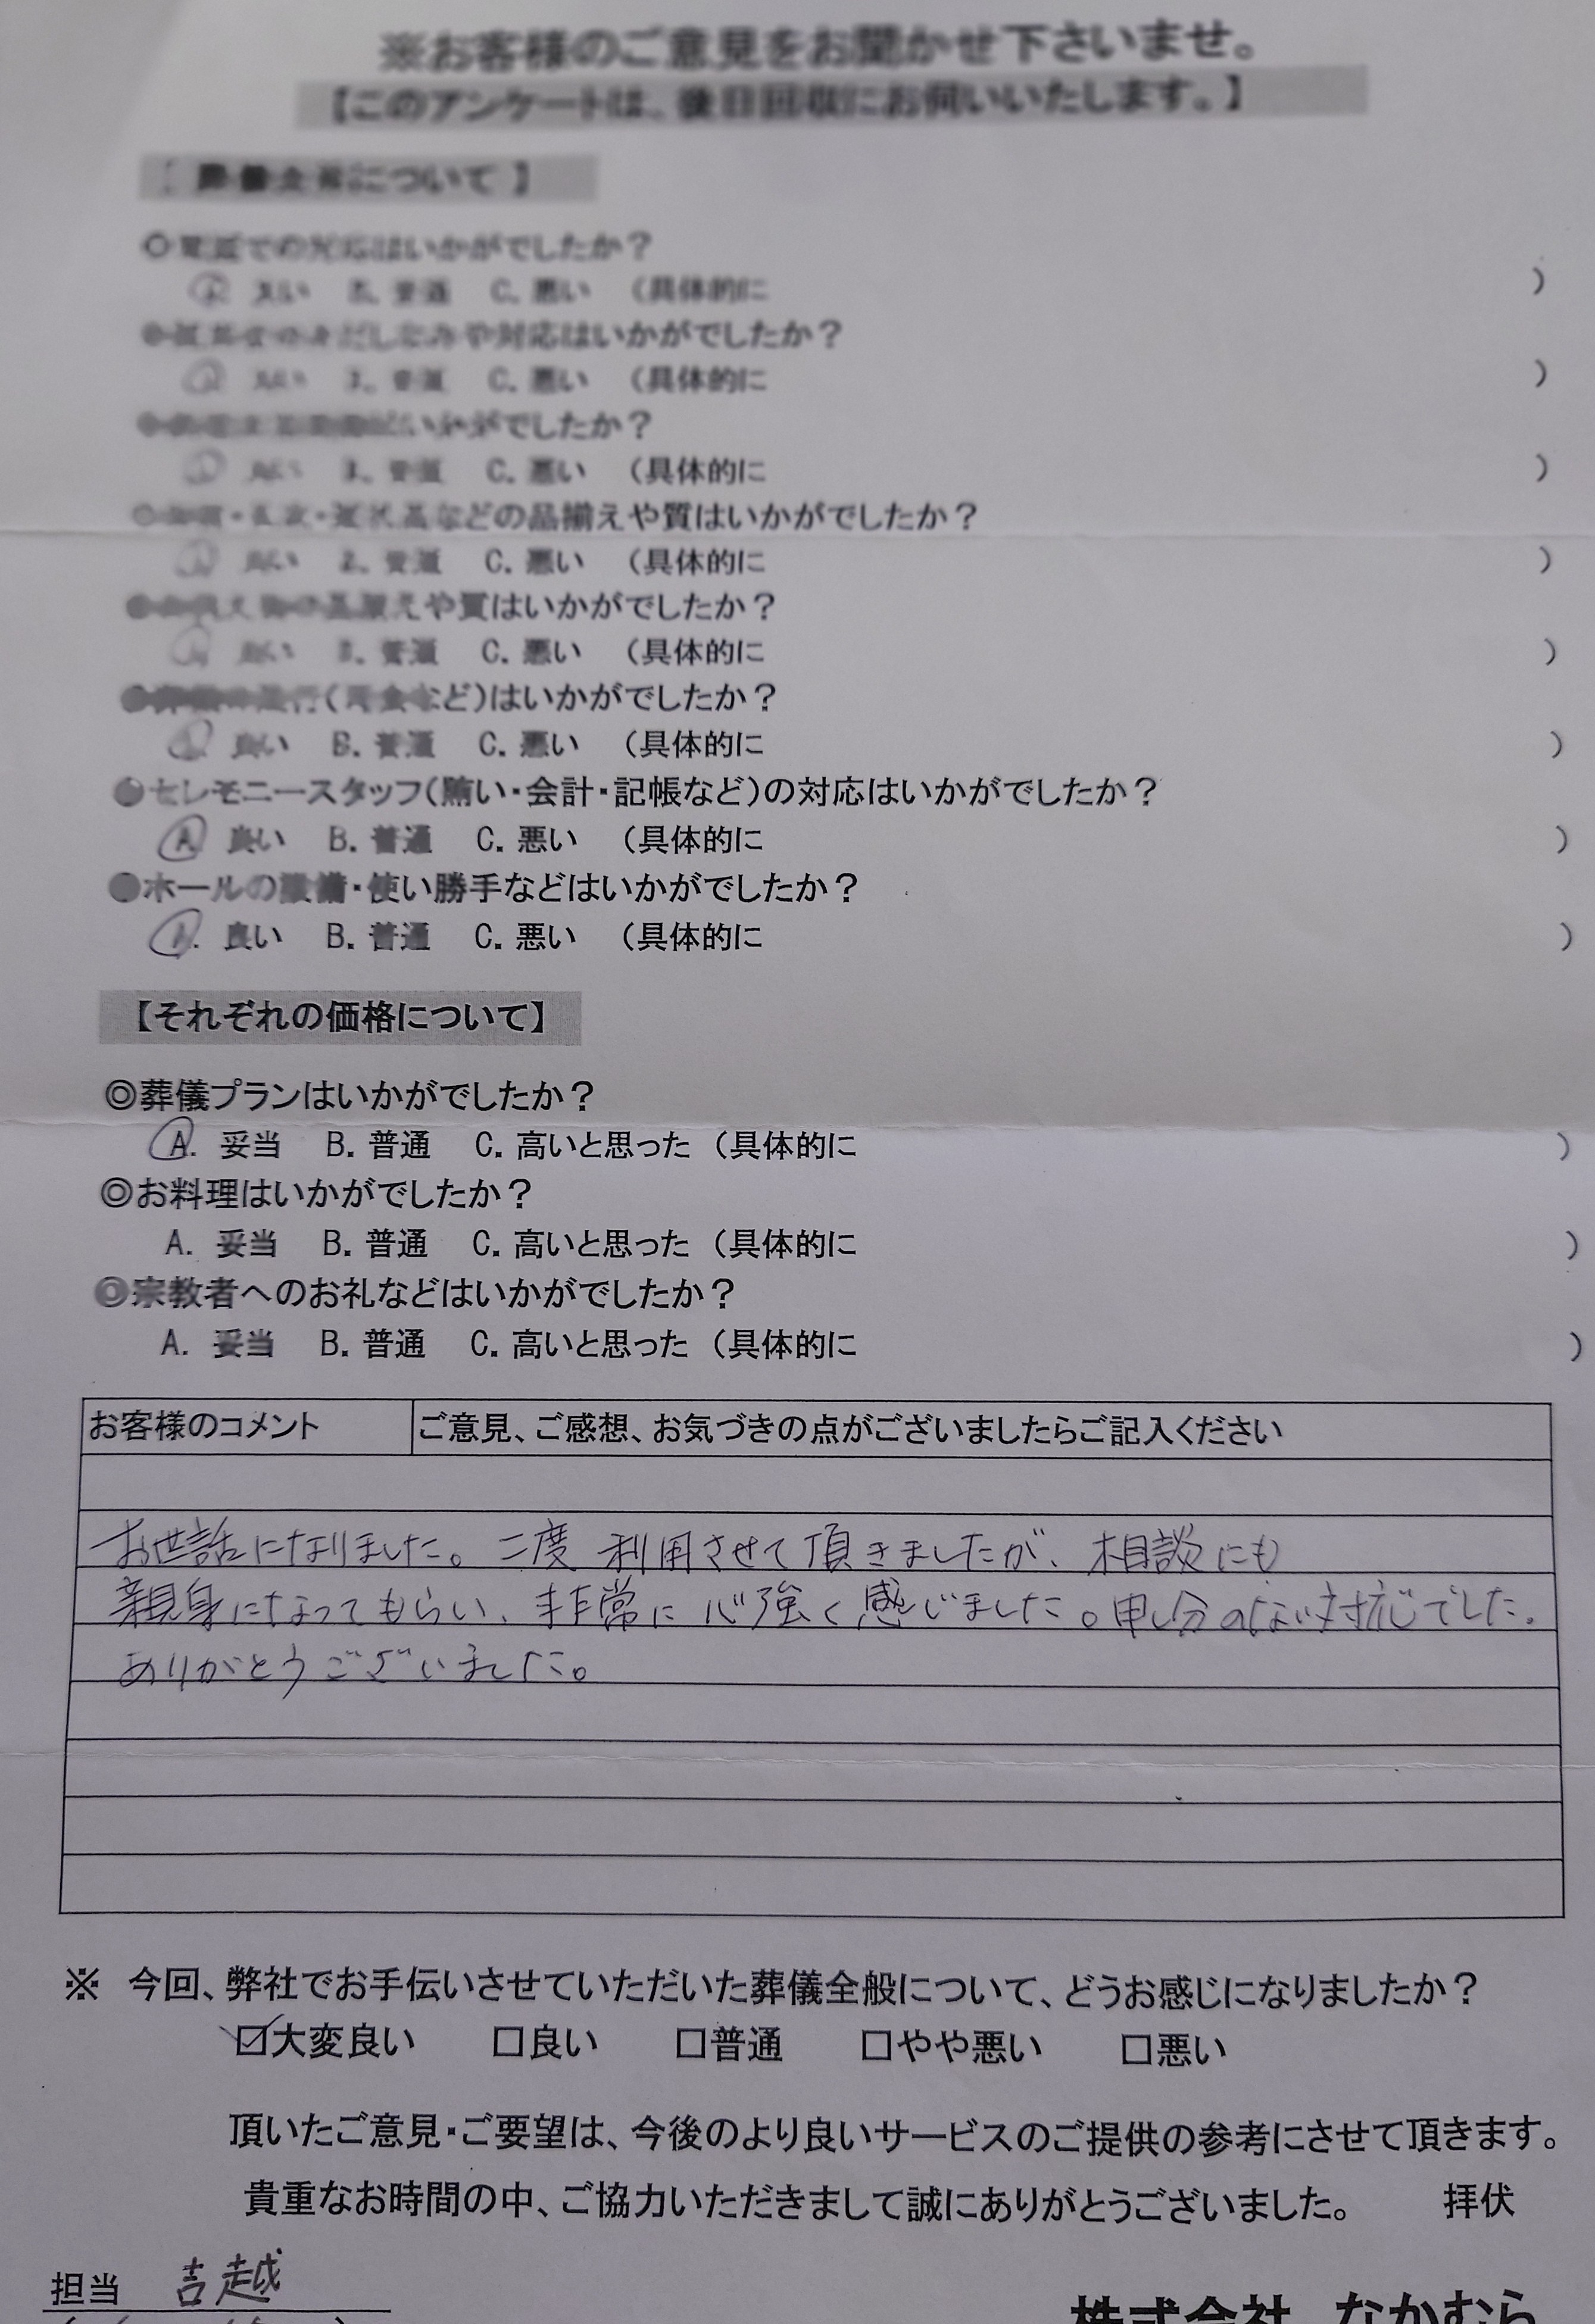 ※お客様のご意見をお聞かせ下さいませ。
【このアンケートは、後日回収にお伺いいたします。】
について】
での対応はいかがでしたか？
良い B. 普通 C. 悪い （具体的に ）
だしなみや対応はいかがでしたか？
良い 普通 C. 悪い （具体的に ）
いかがでしたか？
良い 普通 C. 悪い （具体的に ）
などの品揃えや質はいかがでしたか？
良い 普通 C. 悪い （具体的に ）
品揃えや質はいかがでしたか？
良い 普通 C. 悪い （具体的に ）
など）はいかがでしたか？
良い B. 普通 C. 悪い （具体的に ）
●セレモニースタッフ（賄い・会計・記帳など）の対応はいかがでしたか？
A 良い B. 普通 C. 悪い （具体的に ）
●ホールの設備・使い勝手などはいかがでしたか？
A. 良い B. 普通 C. 悪い （具体的に ）
【それぞれの価格について】
◎葬儀プランはいかがでしたか？
A. 妥当 B. 普通 C. 高いと思った （具体的に ）
◎お料理はいかがでしたか？
A. 妥当 B. 普通 C. 高いと思った （具体的に ）
◎宗教者へのお礼などはいかがでしたか？
A. 妥当 B. 普通 C. 高いと思った （具体的に ）
お客様のコメント ご意見、ご感想、お気づきの点がございましたらご記入ください
お世話になりました。二度利用させて頂きましたが、相談にも
親身になってもらい、非常に心強く感じました。申し分のない対応でした。
ありがとうございました。
※ 今回、弊社でお手伝いさせていただいた葬儀全般について、どうお感じになりましたか？
☑大変良い □良い □普通 □やや悪い □悪い
頂いたご意見・ご要望は、今後のより良いサービスのご提供の参考にさせて頂きます。
貴重なお時間の中、ご協力いただきまして誠にありがとうございました。 拝伏
担当 吉越
株式会社 なかむら